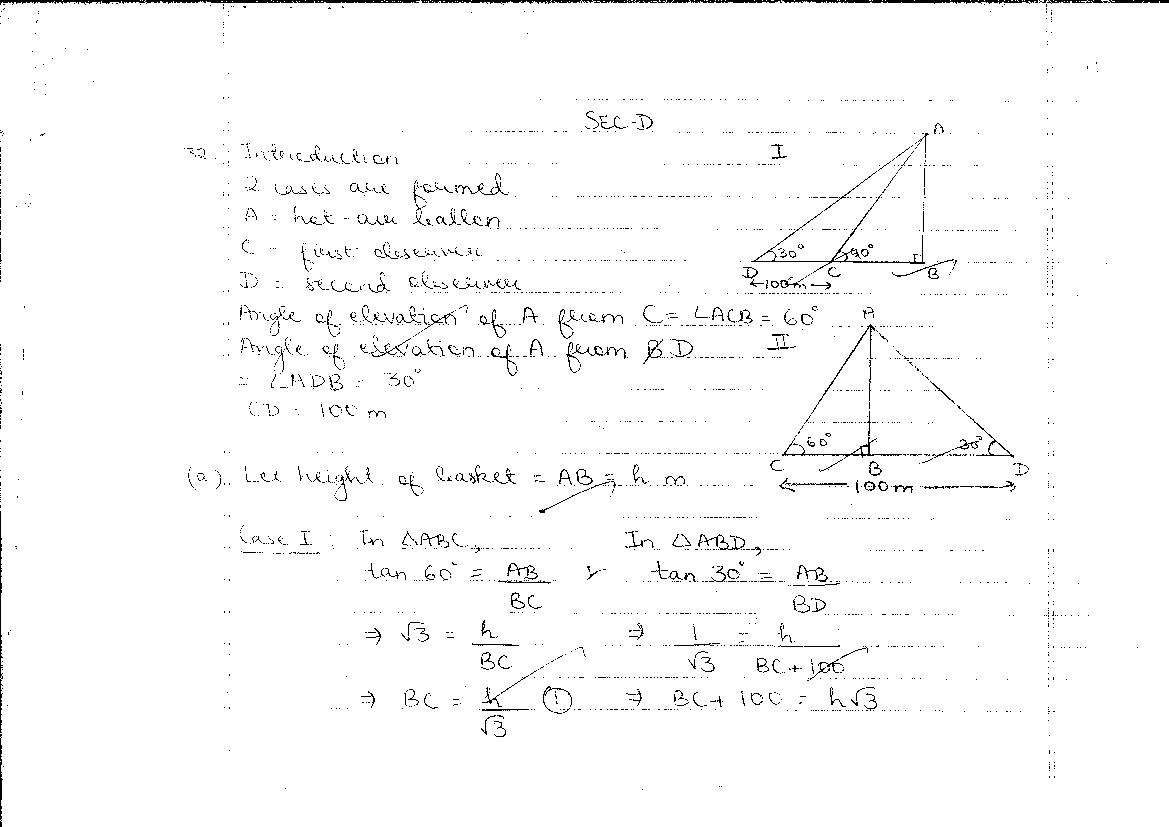 SEC-D
32. Introduction
2 cases are formed
A = hot-air ballon
C = first observer
D = second observer
Angle of elevation of A from C = ∠ACB = 60°
Angle of elevation of A from D
= ∠ADB = 30°
CD = 100 m
I
A
30°
90°
D
C
B
100m
II
A
60°
30°
C
B
D
100m
(a) Let height of basket = AB = h m
Case I : In △ABC, In △ABD,
tan 60° = AB/BC & tan 30° = AB/BD
⇒ √3 = h/BC ⇒ 1/√3 = h/BC+100
⇒ BC = h/√3 ① ⇒ BC+ 100 = h√3